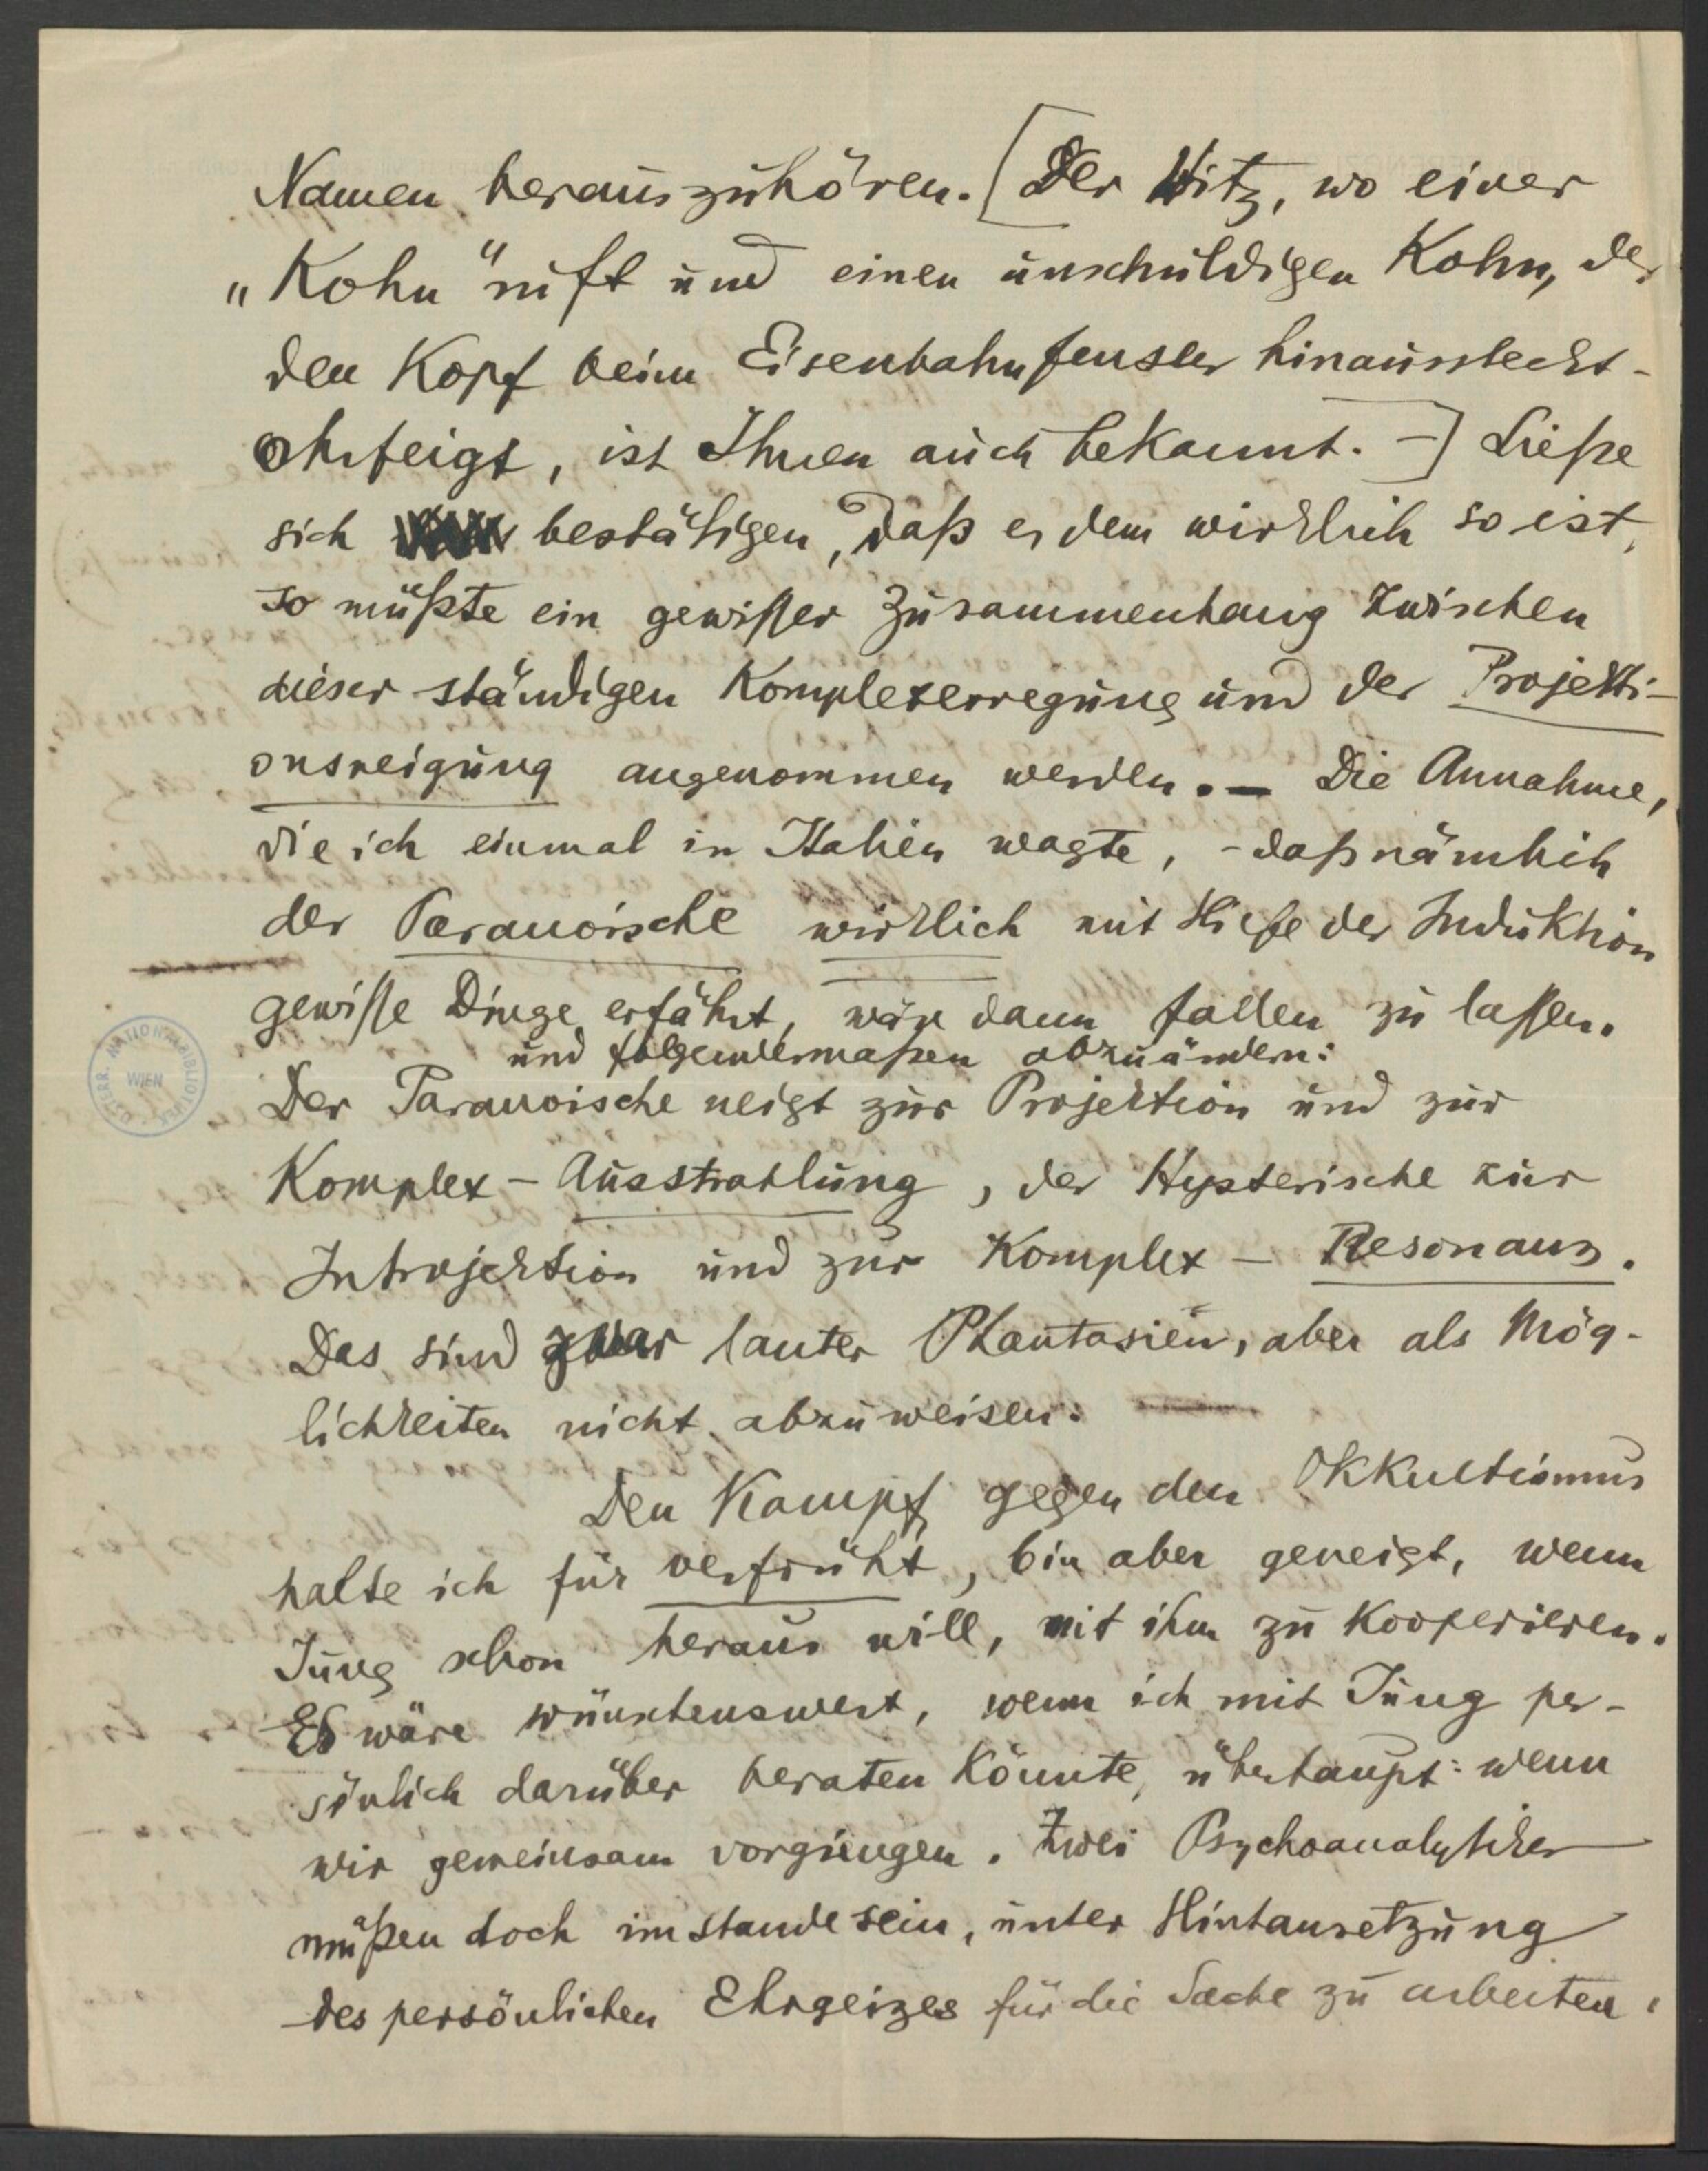 Namen herauszuhören. [Der Witz, wo einer
„Kohn" ruft und einen unschuldigen Kohn, der
den Kopf beim Eisenbahnfenster hinaussteckt -
ohrfeigt, ist Ihnen auch bekannt. -] Ließe
sich bestätigen, daß es dem wirklich so ist,
so müßte ein gewisser Zusammenhang zwischen
dieser ständigen Komplexerregung und der Projekti-
onsneigung angenommen werden. — Die Annahme,
die ich einmal in Italien wagte, - daß nämlich
der Paranoische wirklich mit Hilfe der Induktion
gewisse Dinge erfährt, wäre dann fallen zu lassen.
und folgendermaßen abzuändern:
Der Paranoische neigt zur Projektion und zur
Komplex - Ausstrahlung, der Hysterische zur
Introjektion und zur Komplex - Resonanz.
Das sind zwar lauter Phantasien, aber als Mög-
lichkeiten nicht abzuweisen.
Den Kampf gegen den Okkultismus
halte ich für verfrüht, bin aber geneigt, wenn
Jung schon heraus will, mit ihm zu kooperieren.
Es wäre wünschenswert, wenn ich mit Jung per-
sönlich darüber beraten könnte, überhaupt: wenn
wir gemeinsam vorgiengen. Zwei Psychoanalytiker
müßen doch imstande sein, unter Hintansetzung
des persönlichen Ehrgeizes für die Sache zu arbeiten.
ÖSTERR. NATIONALBIBLIOTHEK
WIEN